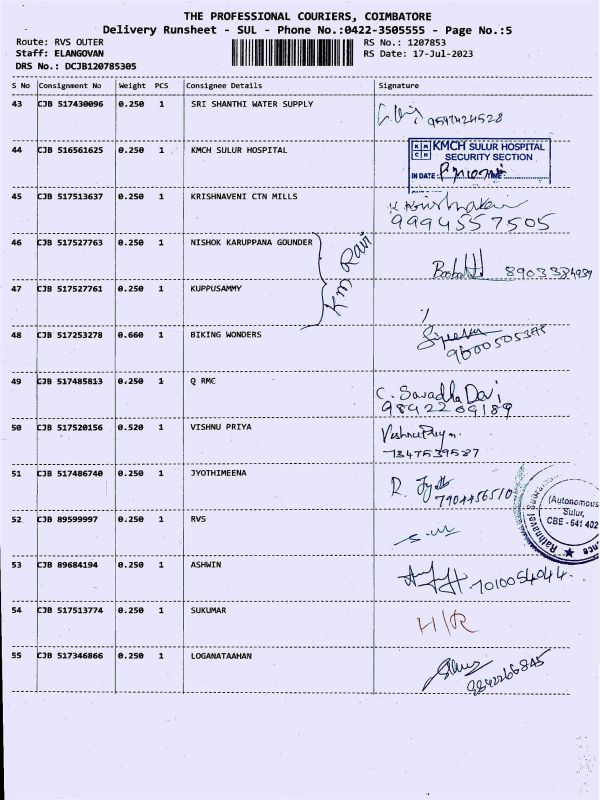 THE PROFESSIONAL COURIERS, COIMBATORE
Delivery Runsheet - SUL - Phone No.:0422-3505555 - Page No.:5
Route: RVS OUTER RS No.: 1207853
Staff: ELANGOVAN RS Date: 17-Jul-2023
DRS No.: DCJB120785305
S No Consignment No Weight PCS Consignee Details Signature
43 CJB 517430096 0.250 1 SRI SHANTHI WATER SUPPLY
9597424528
44 CJB 516561625 0.250 1 KMCH SULUR HOSPITAL
KMCH SULUR HOSPITAL
SECURITY SECTION
IN DATE: TIME:
45 CJB 517513637 0.250 1 KRISHNAVENI CTN MILLS
9994557505
46 CJB 517527763 0.250 1 NISHOK KARUPPANA GOUNDER
Ravi
8903384939
47 CJB 517527761 0.250 1 KUPPUSAMMY
48 CJB 517253278 0.660 1 BIKING WONDERS
9600505378
49 CJB 517485813 0.250 1 Q RMC
C. Savadha Davi
9842209189
50 CJB 517520156 0.520 1 VISHNU PRIYA
Vishnu Priya
7347539587
51 CJB 517486740 0.250 1 JYOTHIMEENA
R. Jyothi
7904456510
52 CJB 89599997 0.250 1 RVS
(Autonomous
Sulur,
CBE - 641 402
53 CJB 89684194 0.250 1 ASHWIN
7010054044
54 CJB 517513774 0.250 1 SUKUMAR
H/R
55 CJB 517346866 0.250 1 LOGANATAAHAN
9842266845